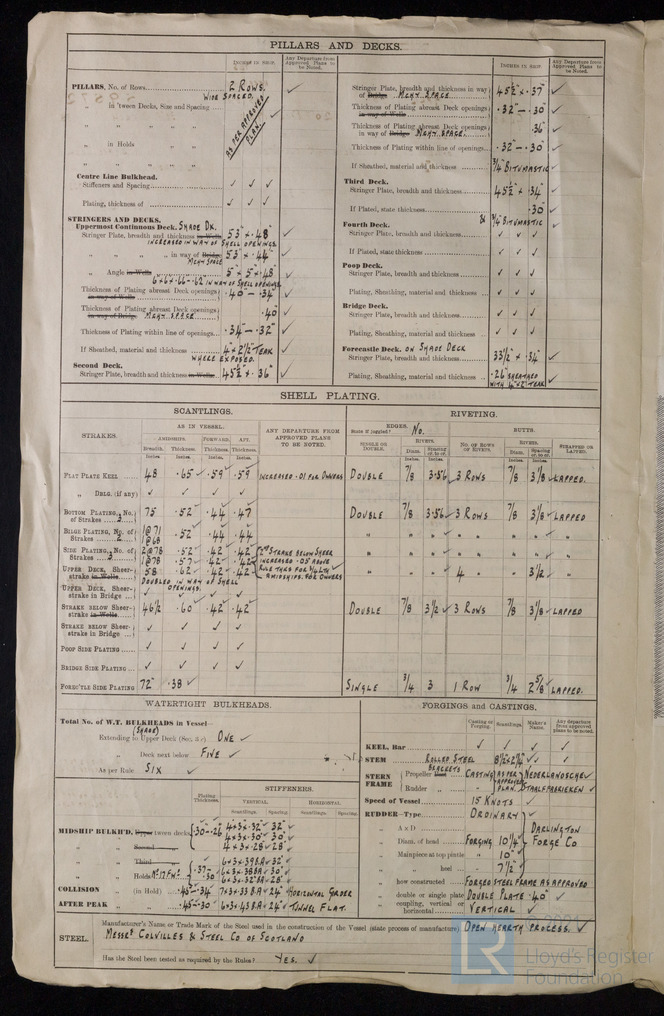 PILLARS AND DECKS.
INCHES IN SHIP.
Any Departure from Approved Plans to be Noted.
PILLARS, No. of Rows 2 ROWS.
WIDE SPACED,
" in 'tween Decks, Size and Spacing
AS PER APPROVED PLAN.
" " " "
" in Holds " "
" " " "
Centre Line Bulkhead.
Stiffeners and Spacing ✓ ✓ ✓
Plating, thickness of ✓ ✓ ✓
STRINGERS AND DECKS.
Uppermost Continuous Deck. SHADE DK.
Stringer Plate, breadth and thickness in Wells 53" × .48" ✓
INCREASED IN WAY OF SHELL OPENINGS.
" " " " in way of Bridge 53" × .44" ✓
MCHY SPACE
" Angle in Wells 5" × 5" × .48" ✓
6×6×.66-.62 IN WAY OF SHELL OPENINGS
Thickness of Plating abreast Deck openings in way of Wells .40" - .34" ✓
Thickness of Plating abreast Deck openings in way of Bridge MCHY. SPACE .40" ✓
Thickness of Plating within line of openings .34" - .32" ✓
If Sheathed, material and thickness 4" × 2½" TEAK ✓
WHERE EXPOSED.
Second Deck.
Stringer Plate, breadth and thickness in Wells 45½" × .36" ✓
INCHES IN SHIP.
Any Departure from Approved Plans to be Noted.
Stringer Plate, breadth and thickness in way of Bridge MCHY SPACE 45½" × .37" ✓
Thickness of Plating abreast Deck openings in way of Wells .32" - .30" ✓
Thickness of Plating abreast Deck openings in way of Bridge MCHY SPACE .36" ✓
Thickness of Plating within line of openings .32" - .30" ✓
If Sheathed, material and thickness ¾" BITUMASTIC ✓
Third Deck.
Stringer Plate, breadth and thickness 45½" × .34" ✓
If Plated, state thickness .30" ✓
& ¾" BITUMASTIC ✓
Fourth Deck.
Stringer Plate, breadth and thickness ✓ ✓ ✓
If Plated, state thickness ✓ ✓ ✓
Poop Deck.
Stringer Plate, breadth and thickness ✓ ✓ ✓
Plating, Sheathing, material and thickness ✓ ✓ ✓
Bridge Deck.
Stringer Plate, breadth and thickness ✓ ✓ ✓
Plating, Sheathing, material and thickness ✓ ✓ ✓
Forecastle Deck. ON SHADE DECK
Stringer Plate, breadth and thickness 33½" × .34" ✓
Plating, Sheathing, material and thickness .26" SHEATHED WITH 4"×2" TEAK ✓
SHELL PLATING.
SCANTLINGS.
RIVETING.
STRAKES.
AS IN VESSEL.
AMIDSHIPS. FORWARD. AFT.
Breadth. Thickness Thickness Thickness
Inches. Inches. Inches. Inches.
ANY DEPARTURE FROM APPROVED PLANS TO BE NOTED.
EDGES.
State if joggled? No.
SINGLE OR DOUBLE.
RIVETS.
Diam. Spacing cr. to cr.
BUTTS.
NO. OF ROWS OF RIVETS.
RIVETS.
Diam. Spacing cr. to cr.
STRAPPED OR LAPPED.
FLAT PLATE KEEL 48 .65 ✓ .59 ✓ .59 INCREASED .01 FOR OWNERS DOUBLE 7/8 3.56 ✓ 3 ROWS 7/8 3⅛ ✓ LAPPED.
" DBLG. (if any) ✓ ✓ ✓ ✓
BOTTOM PLATING, No. of Strakes 3 75 .52 .44 .47 DOUBLE 7/8 3.56 ✓ 3 ROWS 7/8 3⅛ ✓ LAPPED
BILGE PLATING, No. of Strakes 2 1@71 1@68 .52 .44 .44 " " " " " " "
SIDE PLATING, No. of Strakes 3 2@78 1@78 .52 .57 .42 .42 .42 .42 2ND STRAKE BELOW SHEER INCREASED .05 ABOVE
UPPER DECK, Sheerstrake in Wells 58 .62 .42 .42 4 3½
DOUBLED IN WAY OF SHELL OPENINGS.
UPPER DECK, Sheerstrake in Bridge
STRAKE BELOW Sheerstrake in Wells 46½ .60 .42 .42 DOUBLE 7/8 3½ ✓ 3 ROWS 7/8 3⅛ ✓ LAPPED
STRAKE BELOW Sheerstrake in Bridge ✓ ✓ ✓ ✓
POOP SIDE PLATING ✓ ✓ ✓ ✓
BRIDGE SIDE PLATING ✓ ✓ ✓ ✓
FOREC'TLE SIDE PLATING 72" .38 ✓ SINGLE ¾ 3 1 ROW ¾ 2⅝ LAPPED.
WATERTIGHT BULKHEADS.
Total No. of W.T. BULKHEADS in Vessel—
(SHADE)
Extending to Upper Deck (Sec. 3 c) ONE ✓
" Deck next below FIVE ✓
As per Rule SIX ✓
Plating Thickness.
STIFFENERS.
VERTICAL. HORIZONTAL.
Scantlings. Spacing Scantlings. Spacing
MIDSHIP BULKH'D, Upper tween decks .30-.26 4×3×.32" 32" ✓
4×3×.30 30" ✓
" Second " 4×3×.28 28" ✓
" Third " 6×3×.39BA 32"
" Holds .37-.30 6×3×.38BA 30"
6×3×.32BA 28"
COLLISION " (in Hold) .45"-.34" 7×3×.33BA 24" HORIZONTAL GIRDER
AFTER PEAK " " .45-.30" 6×3×.43BA 24" TUNNEL FLAT.
FORGINGS and CASTINGS.
Casting or Forging. Scantlings. Maker's Name. Any departure from approved plans to be noted.
KEEL, Bar ✓ ✓ ✓ ✓
STEM ROLLED STEEL 8½"×2¼" ✓ ✓
BRACKETS
STERN FRAME Propeller Post CASTING AS PER APPROVED PLAN. NEDERLANDSCHE ✓
Rudder " STAALFABRIEKEN ✓
Speed of Vessel 15 KNOTS ✓
RUDDER—Type ORDINARY ✓
" A x D
" Diam. of head FORGING 10¼" DARLINGTON FORGE CO
" Mainpiece at top pintle " 10"
" " heel " 7½"
" how constructed FORGED STEEL FRAME AS APPROVED
" double or single plate DOUBLE PLATE .40" ✓
" coupling, vertical or horizontal VERTICAL ✓
STEEL.
Manufacturer's Name or Trade Mark of the Steel used in the construction of the Vessel (state process of manufacture) OPEN HEARTH PROCESS. ✓
MESSRS COLVILLES & STEEL CO OF SCOTLAND
Has the Steel been tested as required by the Rules? YES. ✓
LR
Lloyd's Register
Foundation